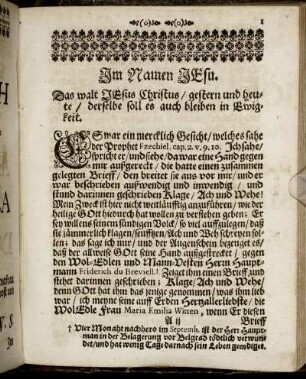 -(o)- -(o)- 1
Im Namen JEsu.
Das walt JEsus Christus / gestern und heu-
te / derselbe soll es auch bleiben in Ewig-
keit.
ES war ein mercklich Gesicht / welches sahe
der Prophet Ezechiel. cap. 2. v. 9. 10. Ich sahe /
spricht er / und siehe / da war eine Hand gegen
mir außgereckt / die hatte einen zusammen
gelegten Brieff / den breitet sie aus vor mir / und er
war beschrieben außwendig und inwendig / und
stund darinnen geschrieben Klage / Ach und Wehe!
Mein Zweck ist hier nicht weitläufftig anzuführen / was der
heilige GOtt hiedurch hat wollen zu verstehen geben: Er
sey willens seinem sündigen Volck / so viel auffzulegen / daß
sie jämmerlich klagen / seuffzen / Ach und Weh schreyen sol-
len: das sage ich nur / und der Augenschein bezeuget es /
daß der allweise GOtt seine Hand außgestrecket / gegen
den Wol-Edlen und Mann-Vesten Herrn Haupt-
mann Friderich du Breviell † Zeiget ihm einen Brieff / und
stehet darinnen geschrieben; Klage / Ach und Wehe /
denn GOtt hat ihm das jenige genommen / was ihm lieb
war / ich meyne seine auff Erden Hertzallerliebste / die
Wol-Edle Frau Maria Emilia Witten, wenn Er diesen
A ij Brieff
† Vier Monaht nachhero im Septemb. ist der Herr Haupt-
man in der Belagerung vor Belgrad tödtlich verwun-
det / und hat wenig Tage darnach sein Leben geendiget.